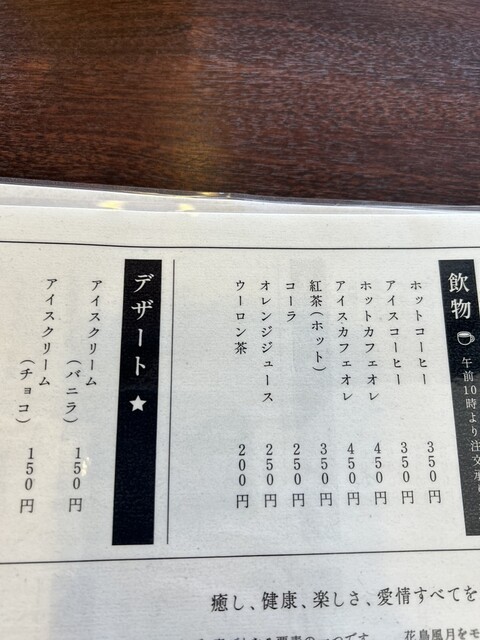 飲物
午前10時より注文承
ホットコーヒー 350円
アイスコーヒー 350円
ホットカフェオレ 450円
アイスカフェオレ 450円
紅茶(ホット) 350円
コーラ 250円
オレンジジュース 250円
ウーロン茶 200円
デザート★
アイスクリーム(バニラ) 150円
アイスクリーム(チョコ) 150円
癒し、健康、楽しさ、愛情すべてを
花鳥風月をモ